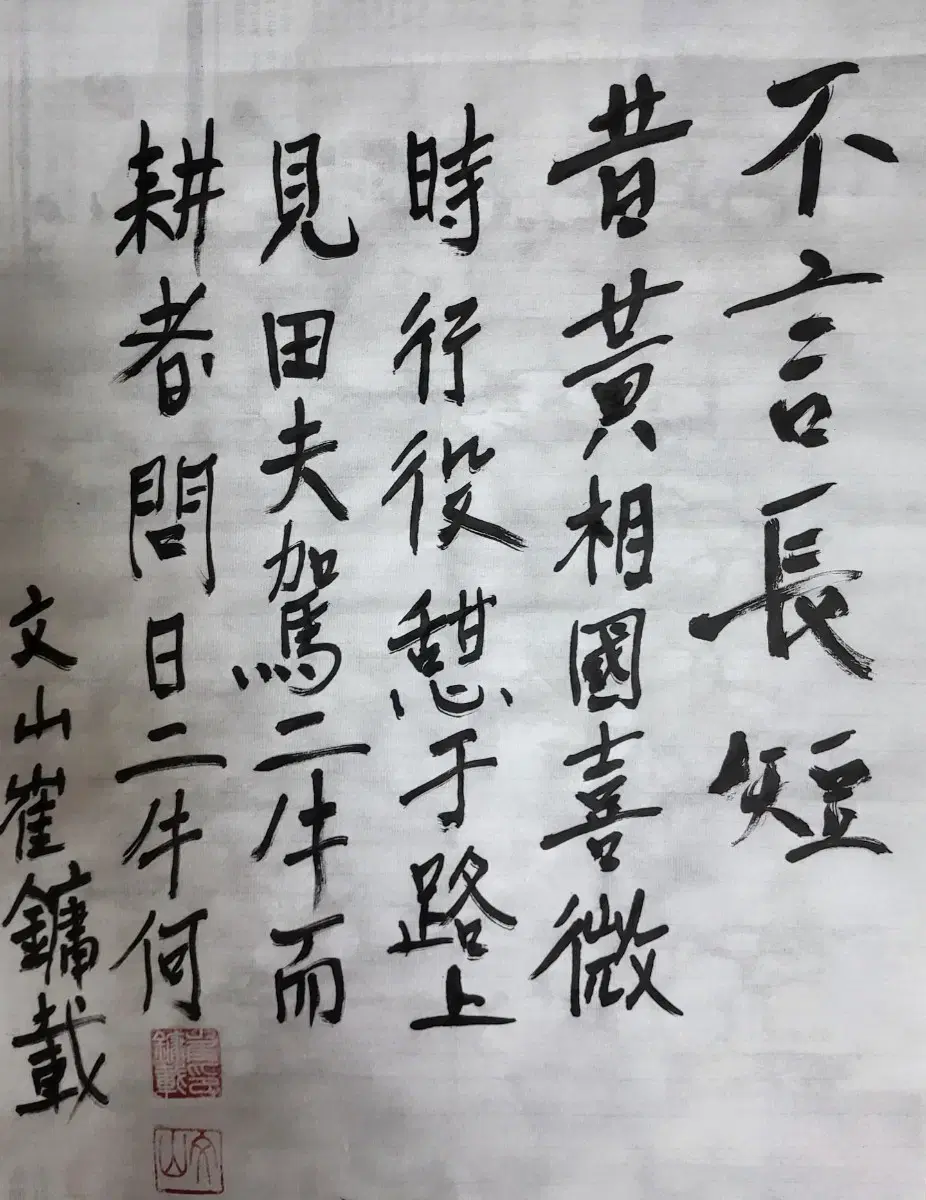 不言長短
昔黃相國喜微
時行役憩于路上
見田夫駕二牛而
耕者問曰二牛何
文山崔鏞載
崔鏞載印
文山